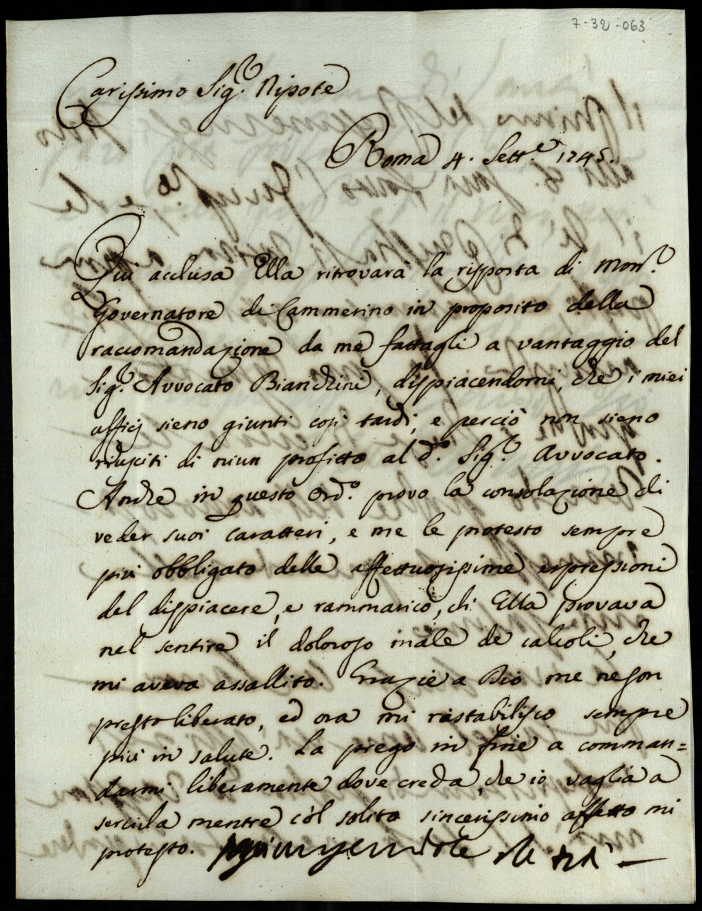 7-32-063
Carissimo Sig.r Nipote
Roma 4. Sett.e 1745.
Quì acclusa Ella ritrovarà la risposta di Mon.r
Governatore di Cammerino in proposito della
raccomandazione da me fattagli a vantaggio del
Sig.r Avvocato Bianchini, dispiacendomi, che i miei
afficj sieno giunti così tardi, e perciò non sieno
riusciti di niun profitto al d.o Sig.r Avvocato.
Anche in questo ord.o provo la consolazione di
veder suoi caratteri, e me le protesto sempre
più obbligato delle affettuosissime espressioni
del dispiacere, e rammarico, ch' Ella provava
nel sentire il doloroso male de calcoli, che
mi aveva assallito. Grazie a Dio me ne son
presto liberato, ed ora mi ristabilisco sempre
più in salute. La prego in fine a comman=
darmi liberamente dove creda, che io vaglia a
servirla mentre còl solito sincerissimo affetto mi
protesto.